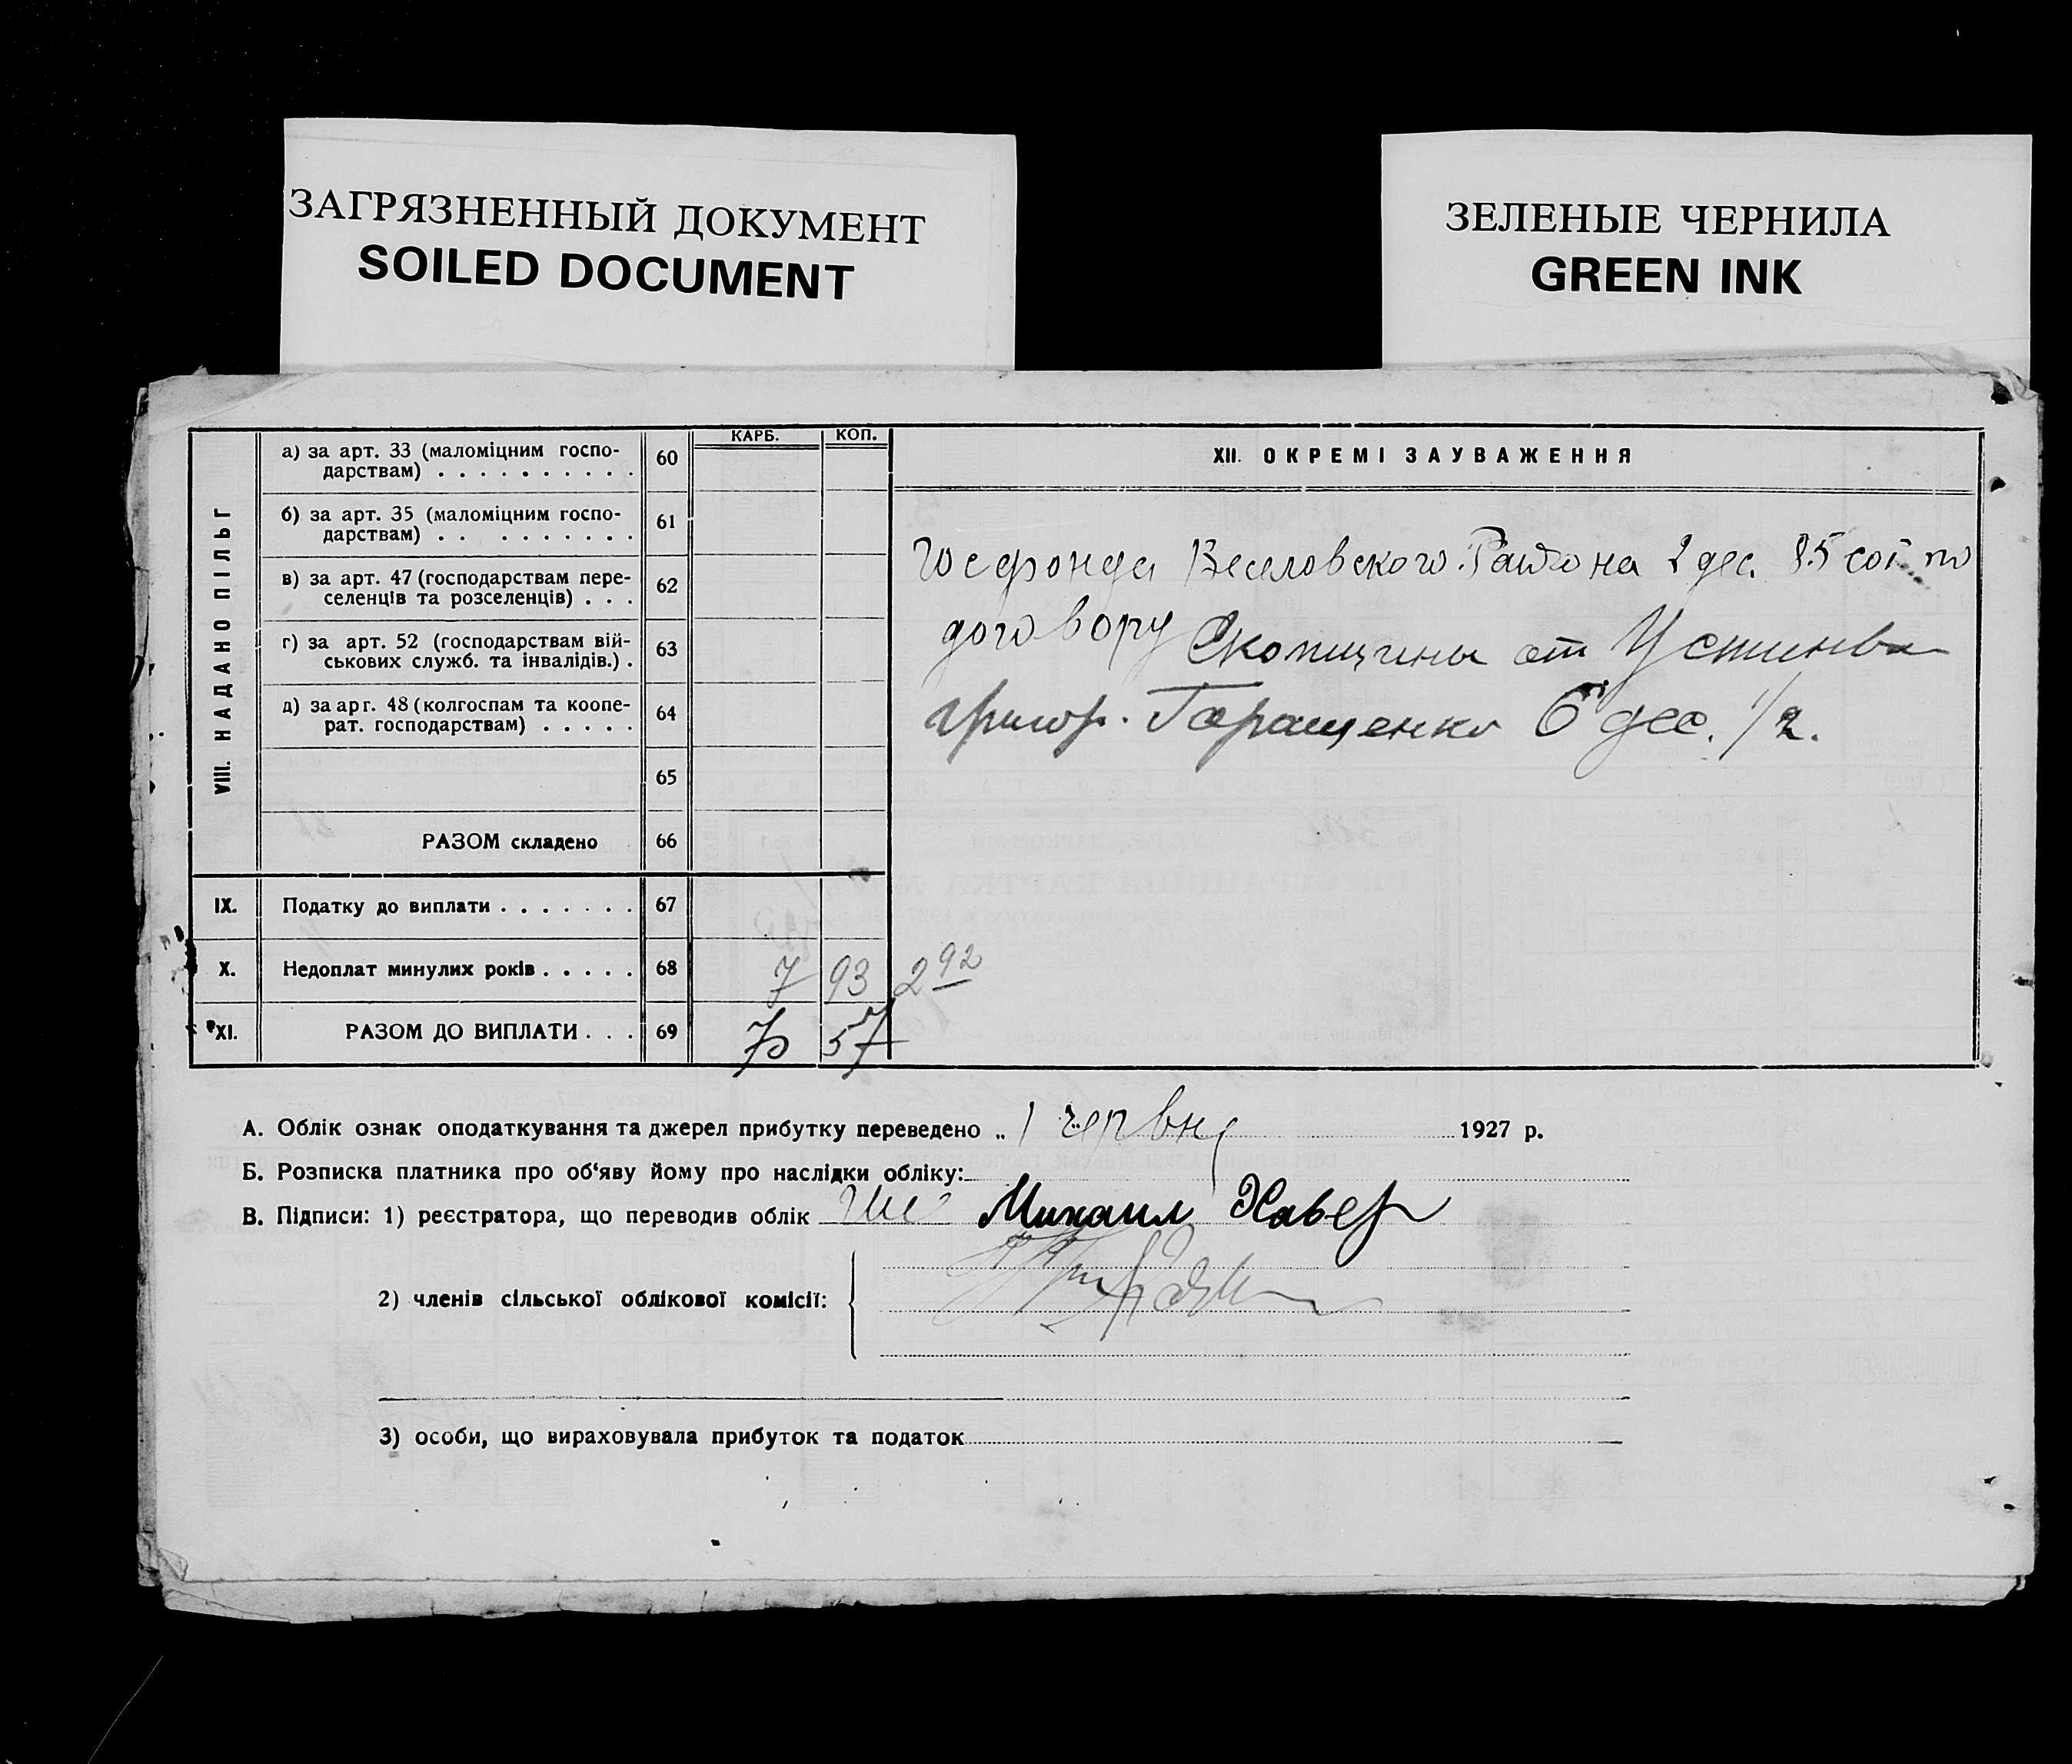 ЗАГРЯЗНЕННЫЙ ДОКУМЕНТ
SOILED DOCUMENT
ЗЕЛЕНЫЕ ЧЕРНИЛА
GREEN INK
VIII. НАДАНО ПІЛЬГ
КАРБ. КОП.
а) за арт. 33 (маломіцним госпо-
дарствам) . . . . . . . . . . 60
б) за арт. 35 (маломіцним госпо-
дарствам) . . . . . . . . . 61
в) за арт. 47 (господарствам пере-
селенців та розселенців) . . . 62
г) за арт. 52 (господарствам вій-
ськових служб. та інвалідів.) . 63
д) за арг. 48 (колгоспам та коопе-
рат. господарствам) . . . . . 64
65
РАЗОМ складено 66
IX. Податку до виплати . . . . . . . 67
X. Недоплат минулих років . . . . . 68 7 93 2 92
XI. РАЗОМ ДО ВИПЛАТИ . . . 69 57
XII. ОКРЕМІ ЗАУВАЖЕННЯ
Госфонда Веселовского Района 2 дес. 85 сот. по
договору Скопщины от Устина
Григор. Гаращенко 6 дес. 1/2.
А. Облік ознак оподаткування та джерел прибутку переведено „ 1 червня 1927 р.
Б. Розписка платника про об‘яву йому про наслідки обліку:
В. Підписи: 1) реєстратора, що переводив облік Михаил
2) членів сільської облікової комісії:
3) особи, що вираховувала прибуток та податок